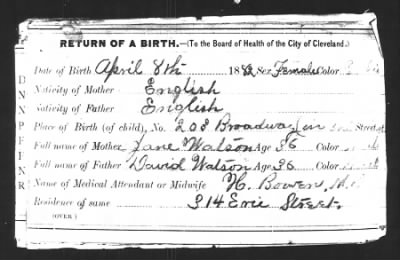 RETURN OF A BIRTH.—(To the Board of Health of the City of Cleveland.)
Date of Birth April 8th 188 Sex Female Color
Nativity of Mother English
Nativity of Father English
Place of Birth (of child), No. 208 Broadway Street
Full name of Mother Jane Watson Age 36 Color
Full name of Father David Watson Age 36 Color
Name of Medical Attendant or Midwife H. Bowen,
Residence of same 314 Erie Street.
(OVER)